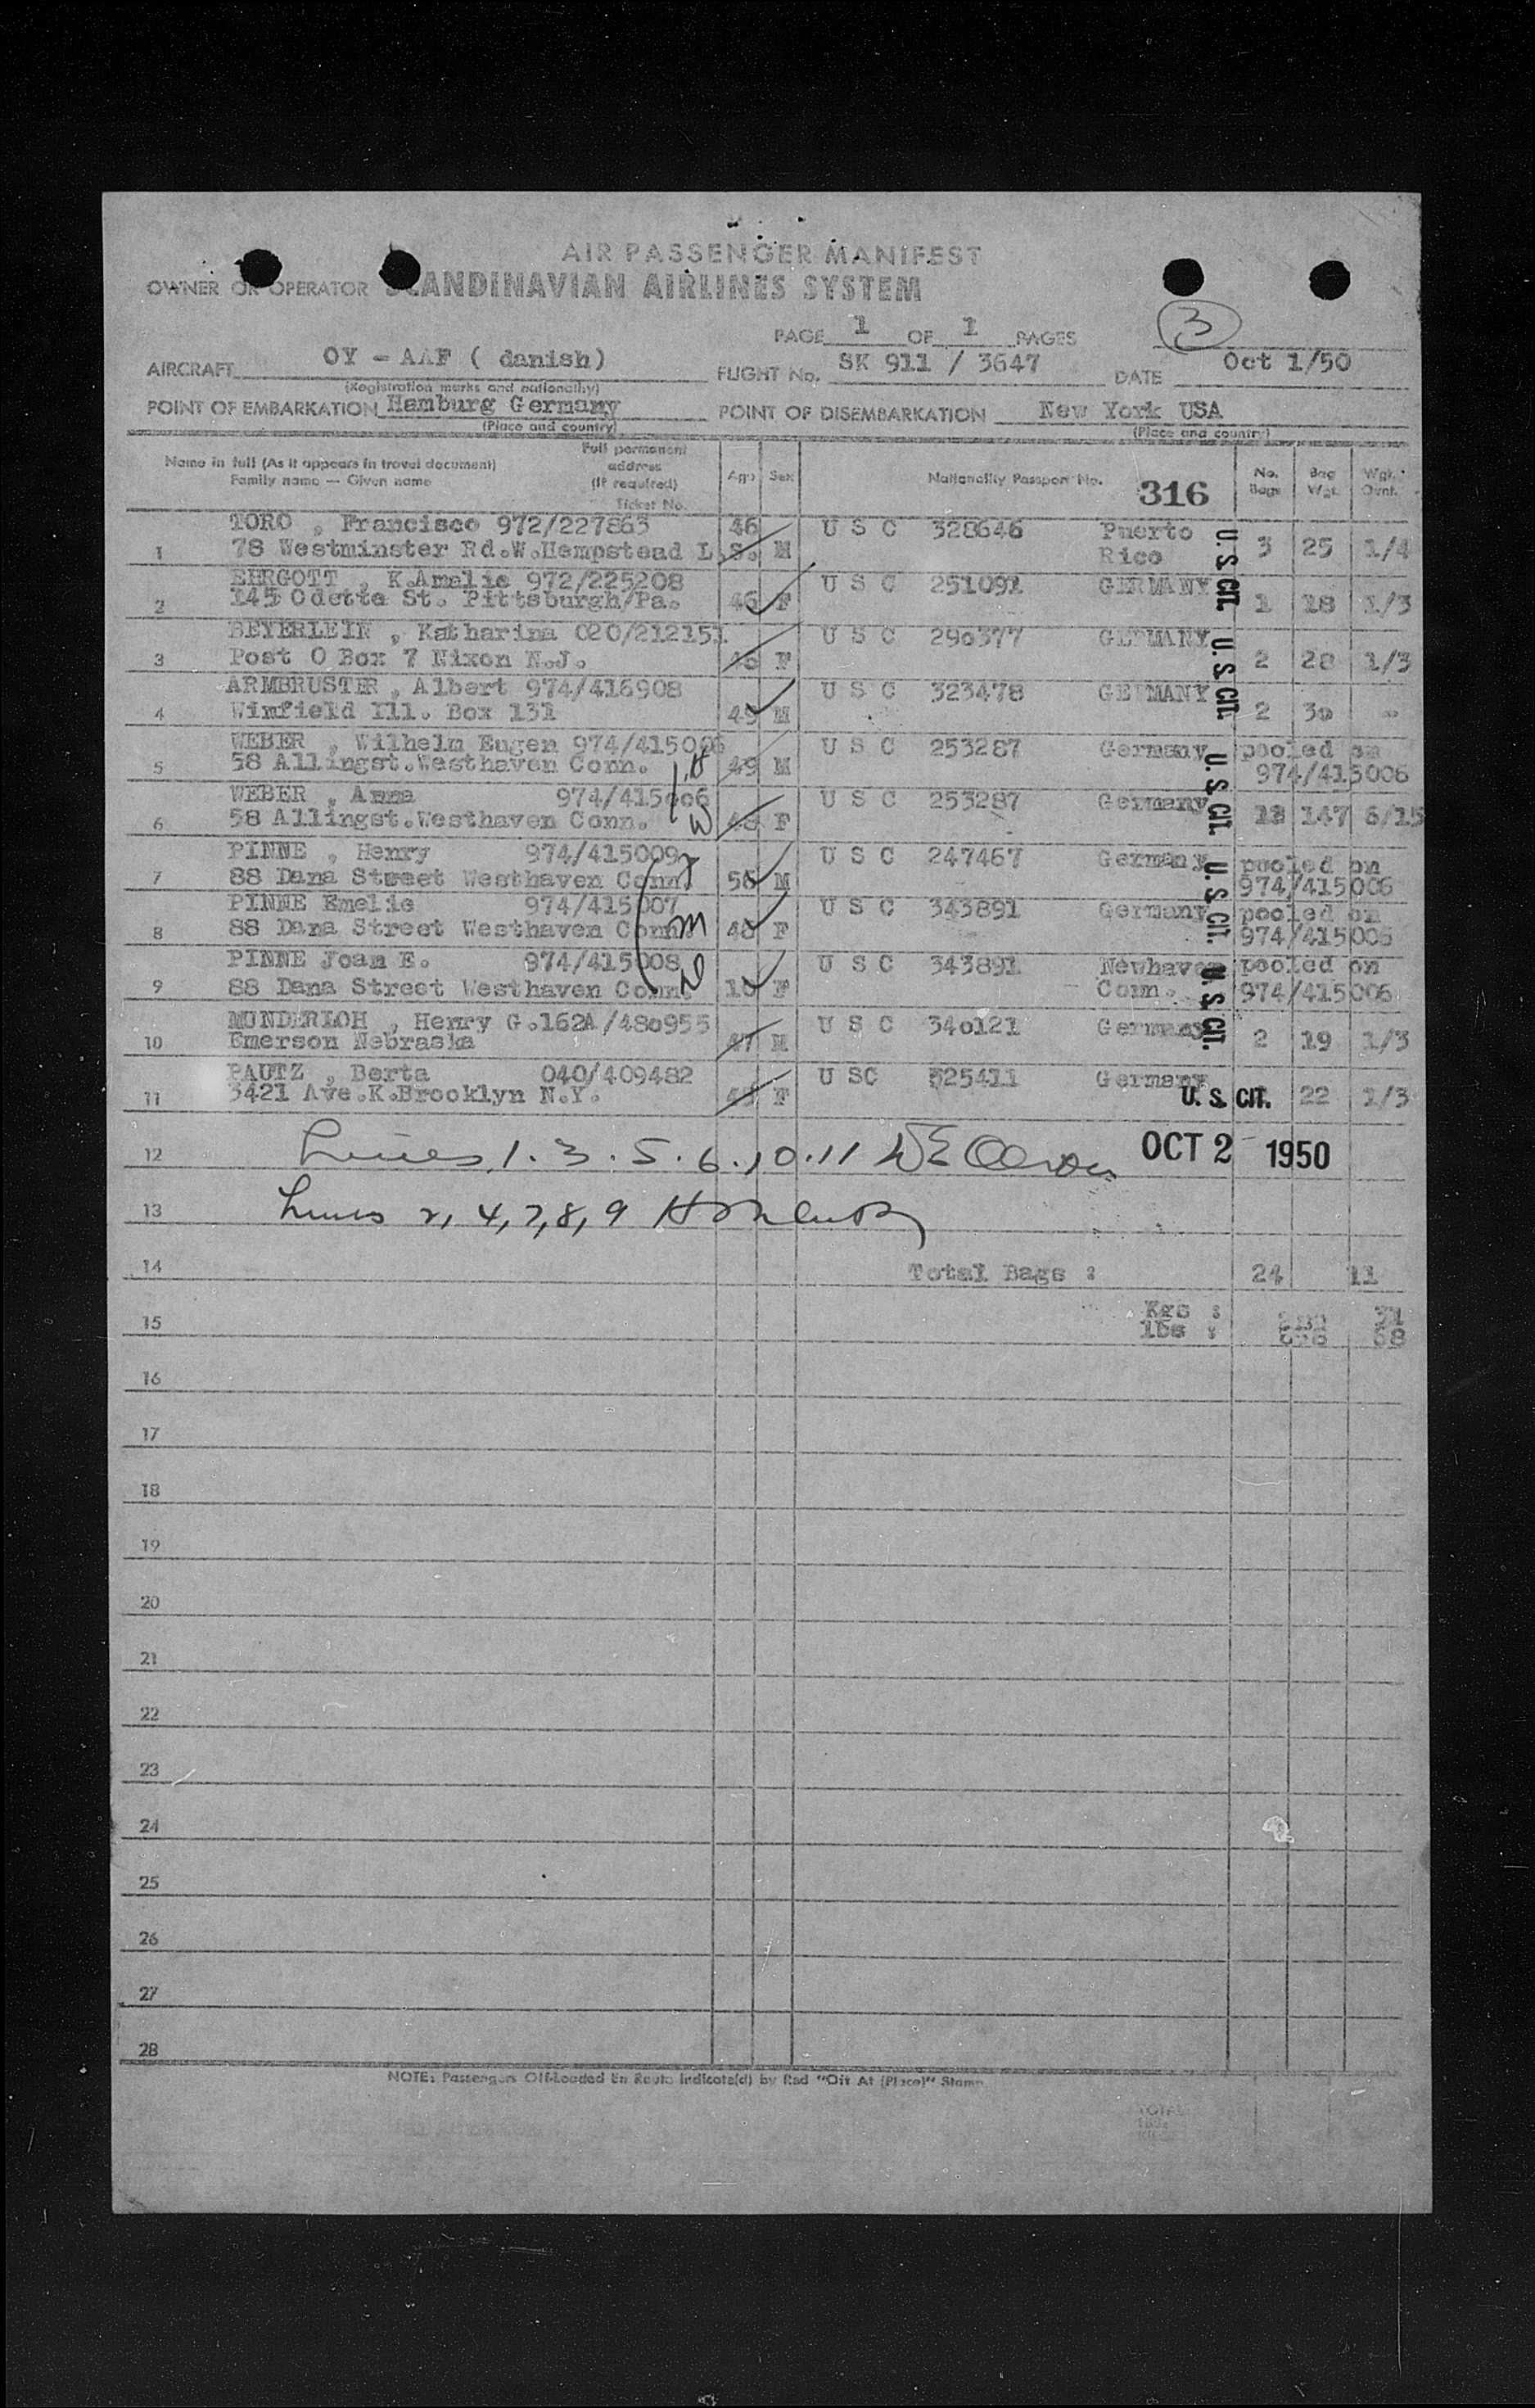 AIR PASSENGER MANIFEST
OWNER OR OPERATOR SCANDINAVIAN AIRLINES SYSTEM
PAGE 1 OF 1 PAGES
3
AIRCRAFT OY - AAF ( danish) FLIGHT No. SK 911 / 3647 DATE Oct 1/50
(Registration marks and nationality)
POINT OF EMBARKATION Hamburg Germany POINT OF DISEMBARKATION New York USA
(Place and country) (Place and country)
Name in full (As it appears in travel document) Family name — Given name Full permanent address (if required) Ticket No. Age Sex Nationality Passport No. 316 No. Bags Bag Wgt. Wgt.
TORO , Francisco 972/227863 46 U S C 328646 Puerto
1 78 Westminster Rd.W.Hempstead L.S. M Rico U.S CIT. 3 25 1/4
EHRGOTT , K.Amalie 972/225208 U S C 251091 GERMANY
2 145 Odette St. Pittsburgh/Pa. 46 F 1 18 1/3
BEYERLEIN , Katharina 020/212151 U S C 290377 GERMANY
3 Post O Box 7 Nixon N.J. F U.S CIT. 2 28 1/3
ARMBRUSTER , Albert 974/416908 U S C 323478 GERMANY
4 Winfield Ill. Box 131 49 M 2 30 -
WEBER , Wilhelm Eugen 974/415006 U S C 253287 Germany pooled on
5 58 Allingst.Westhaven Conn. 49 M U.S CIT. 974/415006
WEBER , Anna 974/415006 U S C 253287 Germany
6 58 Allingst.Westhaven Conn. F 147 6/15
PINNE , Henry 974/415009 U S C 247467 Germany pooled on
7 88 Dana Street Westhaven Conn. 56 M U.S CIT. 974/415006
PINNE Emelie 974/415007 U S C 343891 Germany pooled on
8 88 Dana Street Westhaven Conn. 48 F 974/415006
PINNE Joan E. 974/415008 U S C 343891 Newhaven pooled on
9 88 Dana Street Westhaven Conn. F Conn. U.S.CIT. 974/415006
MUNDERLOH , Henry G.162A/480955 U S C 340121 Germany
10 Emerson Nebraska 47 M 2 19 1/3
PAUTZ , Berta 040/409482 U SC 325411 Germany
11 3421 Ave.K.Brooklyn N.Y. F U. S. CIT. 22 1/3
12 Lines 1. 3. 5. 6. 10. 11 OCT 2 1950
13 Lines 2, 4, 7, 8, 9
14 Total Bags : 24 11
Kgs : 31
15 lbs : 68
16
17
18
19
20
21
22
23
24
25
26
27
28
NOTE: Passengers Off-Loaded En Route Indicate(d) by Red "Off At (Place)" Stamp
TOTAL